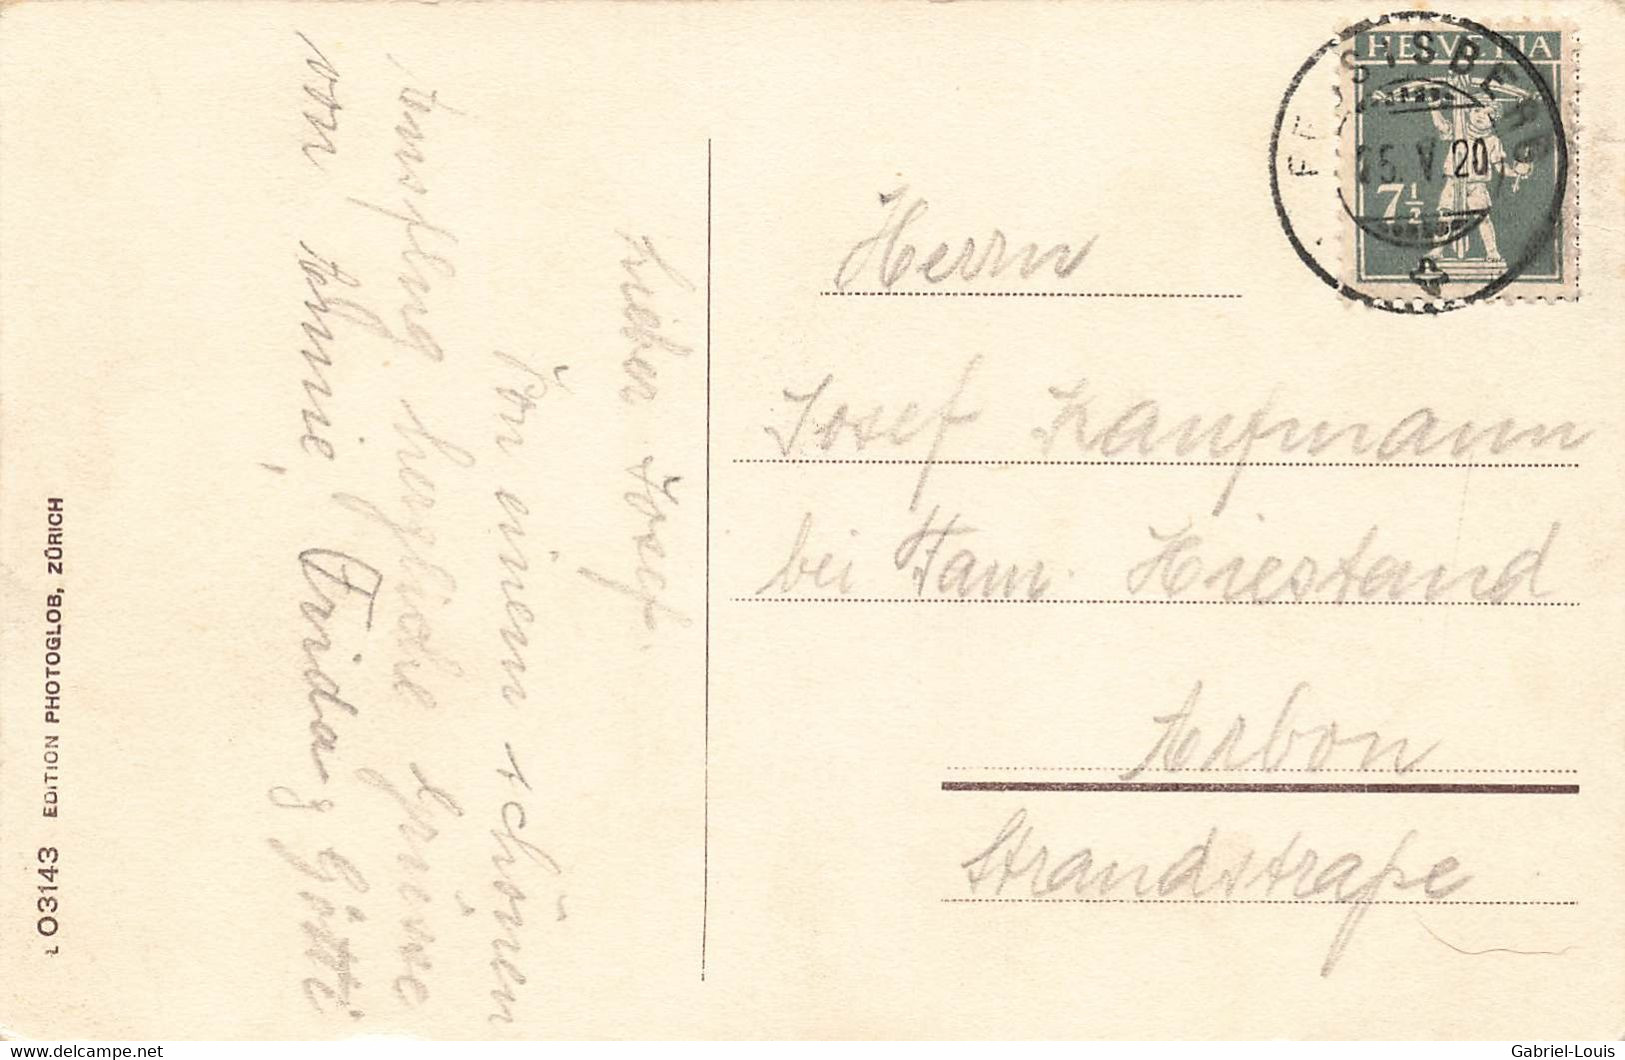 HELVETIA
7½
FEUSISBERG
25. V. 20
Lieber Josef.
Von einem schönen
Ausflug herzliche Grüsse
von Annie, Frida, Götti
Herrn
Josef Kaufmann
bei Fam. Hiestand
Arbon
Strandstraße
03143 EDITION PHOTOGLOB, ZÜRICH
www.delcampe.net
Gabriel-Louis